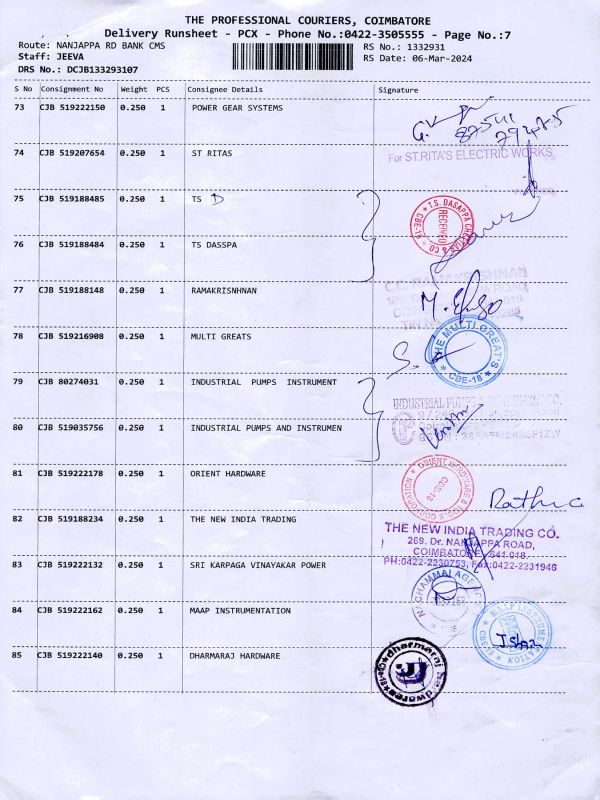 THE PROFESSIONAL COURIERS, COIMBATORE
Delivery Runsheet - PCX - Phone No.:0422-3505555 - Page No.:7
Route: NANJAPPA RD BANK CMS
RS No.: 1332931
Staff: JEEVA
RS Date: 06-Mar-2024
DRS No.: DCJB133293107
S No Consignment No Weight PCS Consignee Details Signature
73 CJB 519222150 0.250 1 POWER GEAR SYSTEMS
74 CJB 519207654 0.250 1 ST RITAS
For ST.RITA'S ELECTRIC WORKS
75 CJB 519188485 0.250 1 TS D
T.S. DASAPPA CHETTIAR & CO. CBE-18
RECEIVED
76 CJB 519188484 0.250 1 TS DASSPA
77 CJB 519188148 0.250 1 RAMAKRISNHNAN
78 CJB 519216908 0.250 1 MULTI GREATS
THE MULTI GREAT'S
CBE-18
79 CJB 80274031 0.250 1 INDUSTRIAL PUMPS INSTRUMENT
80 CJB 519035756 0.250 1 INDUSTRIAL PUMPS AND INSTRUMEN
81 CJB 519222178 0.250 1 ORIENT HARDWARE
Rathna
82 CJB 519188234 0.250 1 THE NEW INDIA TRADING
THE NEW INDIA TRADING CO.
269, Dr. NANJAPPA ROAD,
COIMBATORE - 641 018.
PH:0422-2230753, Fax:0422-2231946
83 CJB 519222132 0.250 1 SRI KARPAGA VINAYAKAR POWER
84 CJB 519222162 0.250 1 MAAP INSTRUMENTATION
MAAP INSTRUMENTATION
85 CJB 519222140 0.250 1 DHARMARAJ HARDWARE
dharmaraj hardwares